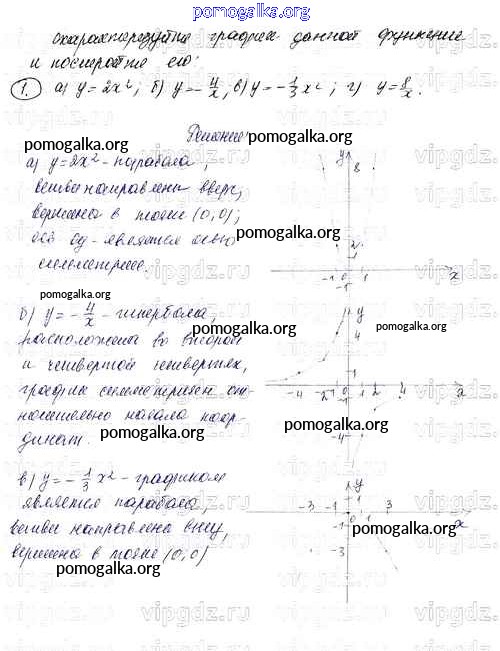 pomogalka.org
охарактеризуйте график данной функции
и постройте его:
1. а) y = 2x²; б) y = -4/x; в) y = -1/3 x²; г) y = 8/x.
pomogalka.org
Решение
а) y = 2x² - парабола,
ветви направлены вверх,
вершина в точке (0,0);
ось Oy - является осью
симметрии.
pomogalka.org
y
8
2
1
-1 0 1
-1
x
pomogalka.org
б) y = -4/x - гипербола,
расположена во второй
и четвертой четвертях,
график симметричен от-
носительно начала коор-
динат.
pomogalka.org
y
4
1
-4 -2 -1 0 1 2 4
-1
-4
x
pomogalka.org
в) y = -1/3 x² - графиком
является парабола,
ветви направлены вниз,
вершина в точке (0,0)
pomogalka.org
y
-3 -1 0 1 3
-1
-3
x
pomogalka.org
vipgdz.ru